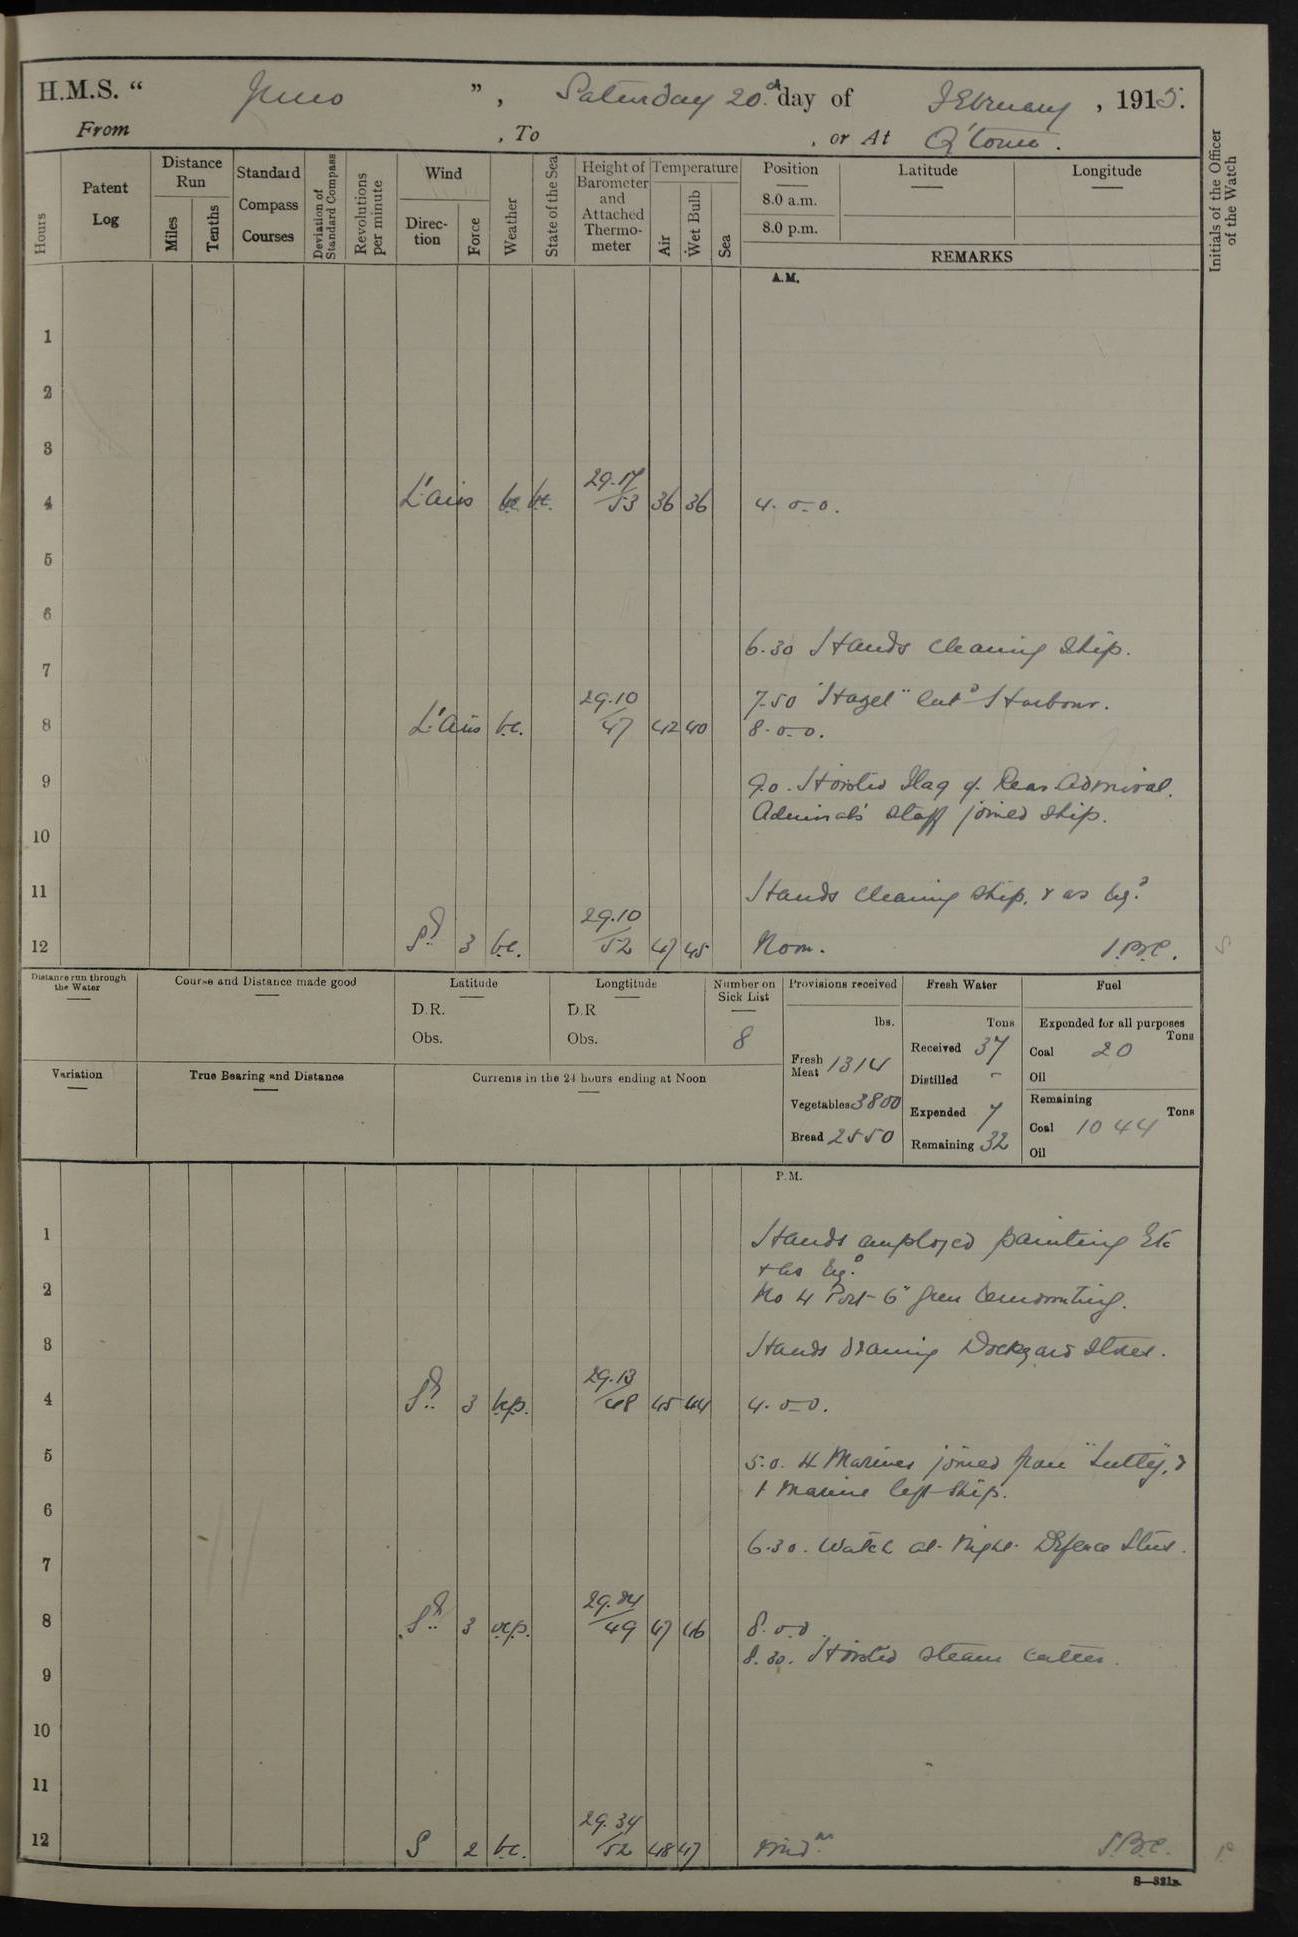 H.M.S. " Juno ", Saturday 20th day of February, 1915.
From , To , or At Q'town.
Hours
Patent Log
Distance Run
Miles
Tenths
Standard Compass Courses
Deviation of Standard Compass
Revolutions per minute
Wind
Direction
Force
Weather
State of the Sea
Height of Barometer and Attached Thermometer
Temperature
Air
Wet Bulb
Sea
Position
8.0 a.m.
8.0 p.m.
Latitude
Longitude
REMARKS
Initials of the Officer of the Watch
A.M.
1
2
3
4 L'airs bc bc. 29.17/53 36 36 4.0.0.
5
6
6.30 Hands cleaning ship.
7
7.50 "Hazel" entd Harbour.
8 L'airs bc. 29.10/47 42 40 8.0.0.
9 9.0. Hoisted Flag of Rear Admiral.
Admirals' staff joined ship.
10
11 Hands cleaning ship. & as reqd
12 Sd 3 bc. 29.10/52 47 45 Noon.
Distance run through the Water
Course and Distance made good
Latitude
D.R.
Obs.
Longtitude
D.R
Obs.
Number on Sick List
8
Provisions received
lbs.
Fresh Meat 1314
Vegetables 3800
Bread 2550
Fresh Water
Tons
Received 37
Distilled -
Expended 7
Remaining 32
Fuel
Expended for all purposes
Tons
Coal 20
Oil
Remaining
Tons
Coal 1044
Oil
Variation
True Bearing and Distance
Currents in the 24 hours ending at Noon
P.M.
1 Hands employed painting Etc
& as reqd
2 No 4 Port 6" gun dismounting.
3 Hands drawing Dockyard stores.
4 Sd 3 bcp. 29.13/48 45 44 4.0.0.
5 5.0. 4 Marines joined from "Sutlej", &
1 Marine left ship.
6
6.30. Watch at Night Defence Stns.
7
8 Sd 3 ocp. 29.24/49 47 46 8.0.0.
8.30. Hoisted steam cutter.
9
10
11
12 S 2 bc. 29.34/52 48 47 Midnt
S—321B.